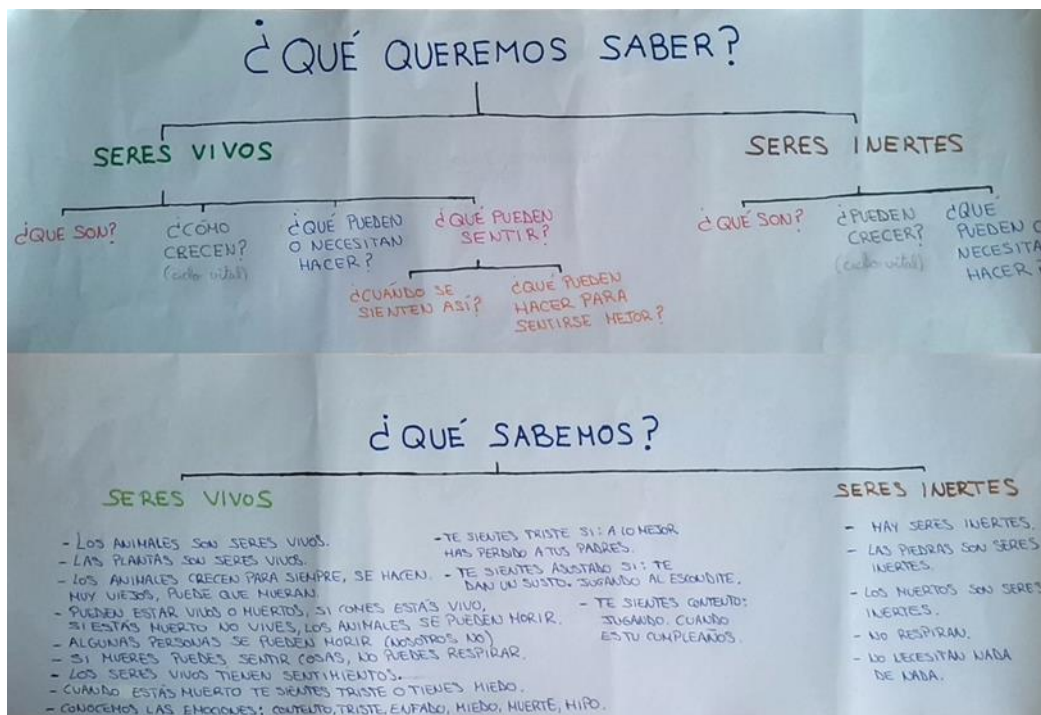 ¿QUÉ QUEREMOS SABER?
SERES VIVOS
SERES INERTES
¿QUE SON?
¿CÓMO
CRECEN?
(ciclo vital)
¿QUÉ PUEDEN
O NECESITAN
HACER?
¿QUÉ PUEDEN
SENTIR?
¿CUÁNDO SE
SIENTEN ASÍ?
¿QUÉ PUEDEN
HACER PARA
SENTIRSE MEJOR?
¿QUÉ SON?
¿PUEDEN
CRECER?
(ciclo vital)
¿QUÉ
PUEDEN O
NECESITA
HACER?
¿QUÉ SABEMOS?
SERES VIVOS
- LOS ANIMALES SON SERES VIVOS.
- LAS PLANTAS SON SERES VIVOS.
- LOS ANIMALES CRECEN PARA SIEMPRE, SE HACEN.
MUY VIEJOS, PUEDE QUE MUERAN.
- PUEDEN ESTAR VIVOS O MUERTOS, SI COMES ESTÁS VIVO,
SI ESTÁS MUERTO NO VIVES, LOS ANIMALES SE PUEDEN MORIR.
- ALGUNAS PERSONAS SE PUEDEN MORIR (NOSOTROS NO)
- SI MUERES PUEDES SENTIR COSAS, NO PUEDES RESPIRAR.
- LOS SERES VIVOS TIENEN SENTIMIENTOS.
- CUANDO ESTÁS MUERTO TE SIENTES TRISTE O TIENES MIEDO.
- CONOCEMOS LAS EMOCIONES: CONTENTO, TRISTE, ENFADO, MIEDO, MUERTE, HIPO.
- TE SIENTES TRISTE SI: A LO MEJOR
HAS PERDIDO A TUS PADRES.
- TE SIENTES ASUSTADO SI: TE
DAN UN SUSTO. JUGANDO AL ESCONDITE.
- TE SIENTES CONTENTO:
JUGANDO. CUANDO
ES TU CUMPLEAÑOS.
SERES INERTES
- HAY SERES INERTES.
- LAS PIEDRAS SON SERES
INERTES.
- LOS MUERTOS SON SERES
INERTES.
- NO RESPIRAN.
- NO NECESITAN NADA
DE NADA.